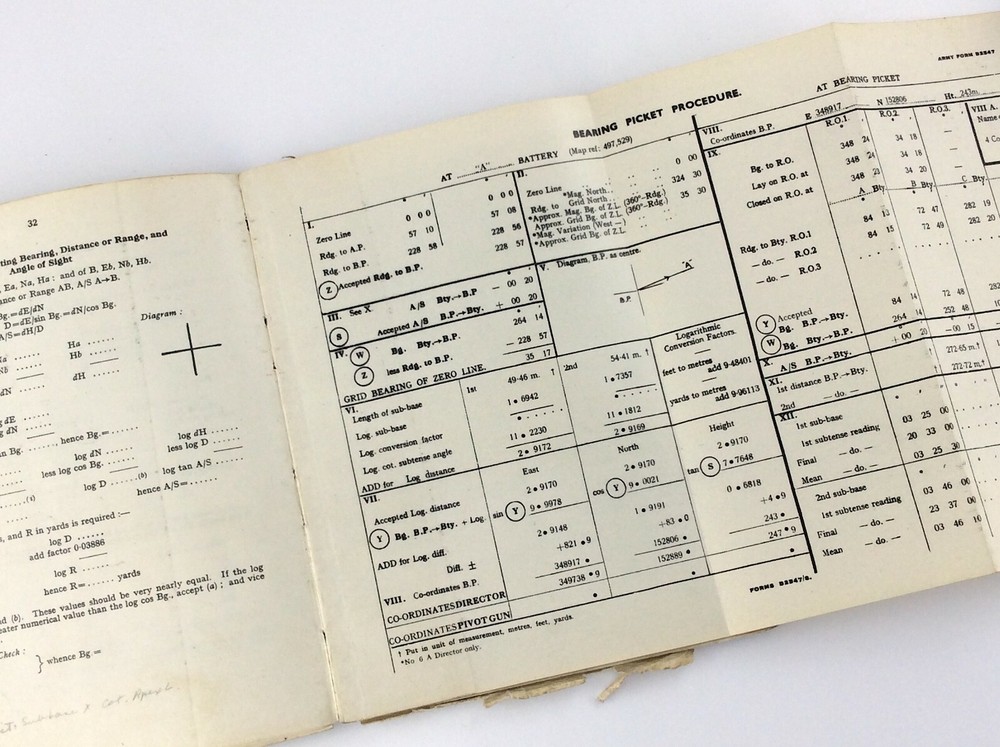 32
ting Bearing, Distance or Range, and
Angle of Sight
Ea, Na, Ha: and of B, Eb, Nb, Hb.
ance or Range AB, A/S A→B.
Bg.=dE/dN
D=dE/sin Bg.=dN/cos Bg.
A/S=dH/D
Diagram :
Na ...... Ha ......
Nb ...... Hb ......
dN ...... dH ......
g dE ......
g dN ......
hence Bg.=......
log dN ...... log dH ......
less log cos Bg. ...... less log D ......
log D ......(b) log tan A/S ......
hence A/S=......
, and R in yards is required :—
log D ......
add factor 0·03886
log R ......
hence R=...... yards
d (b). These values should be very nearly equal. If the log
eater numerical value than the log cos Bg., accept (a) ; and vice
Check :
} whence Bg.=
ARMY FORM B2547
BEARING PICKET PROCEDURE.
AT "A" BATTERY (Map ref: 497,529)
I.
Zero Line 0 00 0 00
Rdg. to A.P. 57 10 57 08
Rdg. to B.P. 228 58 228 56
Z Accepted Rdg. to B.P. 228 57
II.
Zero Line 0 00
Rdg. to *Mag. North 324 30
Grid North
*Approx. Mag. Bg. of Z.L. (360°–Rdg.) 35 30
Approx. Grid Bg. of Z.L. (360°–Rdg.)
*Mag. Variation (West —)
*Approx. Grid Bg. of Z.L.
III. See X. A/S Bty.→B.P — 00 20
S Accepted A/S B.P.→Bty. + 00 20
IV. W Bg. Bty.→B.P. 264 14
Z less Rdg. to B.P. — 228 57
GRID BEARING OF ZERO LINE. 35 17
V. Diagram, B.P. as centre.
"A"
B.P.
VI. 1st 2nd
Length of sub-base 49·46 m. † 54·41 m. †
Log. sub-base 1•6942 1•7357
Log. conversion factor
Log. cot. subtense angle 11•2230 11•1812
ADD for Log distance 2•9172 2•9169
Logarithmic
Conversion Factors.
feet to metres
add 9·48401
yards to metres
add 9·96113
VII. East North Height
Accepted Log. distance 2•9170 2•9170 2•9170
Y Bg. B.P.→Bty. + Log. sin Y 9•9978 cos Y 9•0021 tan S 7•7648
ADD for Log. diff. 2•9148 1•9191 0•6818
Diff. ± +821•9 +83•0 +4•9
VIII. Co-ordinates B.P. 348917• 152806• 243•
CO-ORDINATES DIRECTOR 349738•9 152889• 247•9
CO-ORDINATES PIVOT GUN
† Put in unit of measurement, metres, feet, yards.
*No 6 A Director only.
FORMS B2547/8.
AT BEARING PICKET
VIII. Co-ordinates B.P. E 348917 N 152806 Ht. 243m.
IX. R.O.1 R.O.2 R.O.3
Bg. to R.O. 348 24 34 18 —
Lay on R.O. at 348 24 34 18 —
Closed on R.O. at 348 23 34 20 —
A Bty. B Bty. C Bty.
Rdg. to Bty. R.O.1 84 13 72 47 282 19
— do. — R.O.2 84 15 72 49 282 20
— do. — R.O.3
Y Accepted Bg. B.P.→Bty. 84 14 72 48 282
W Bg. Bty.→B.P. 264 14 252 48
X. A/S B.P.→Bty. +00 20 —00 15
XI. 1st distance B.P.→Bty. † 272·65 m.†
2nd — do. — † 272·72 m.†
XII.
1st sub-base
1st subtense reading 03 25 00
Final — do. — 20 33 00
Mean — do. — 03 25 30
2nd sub-base
1st subtense reading 03 46 00
Final — do. — 23 37 00
Mean — do. — 03 46 10
VIII A.
Name